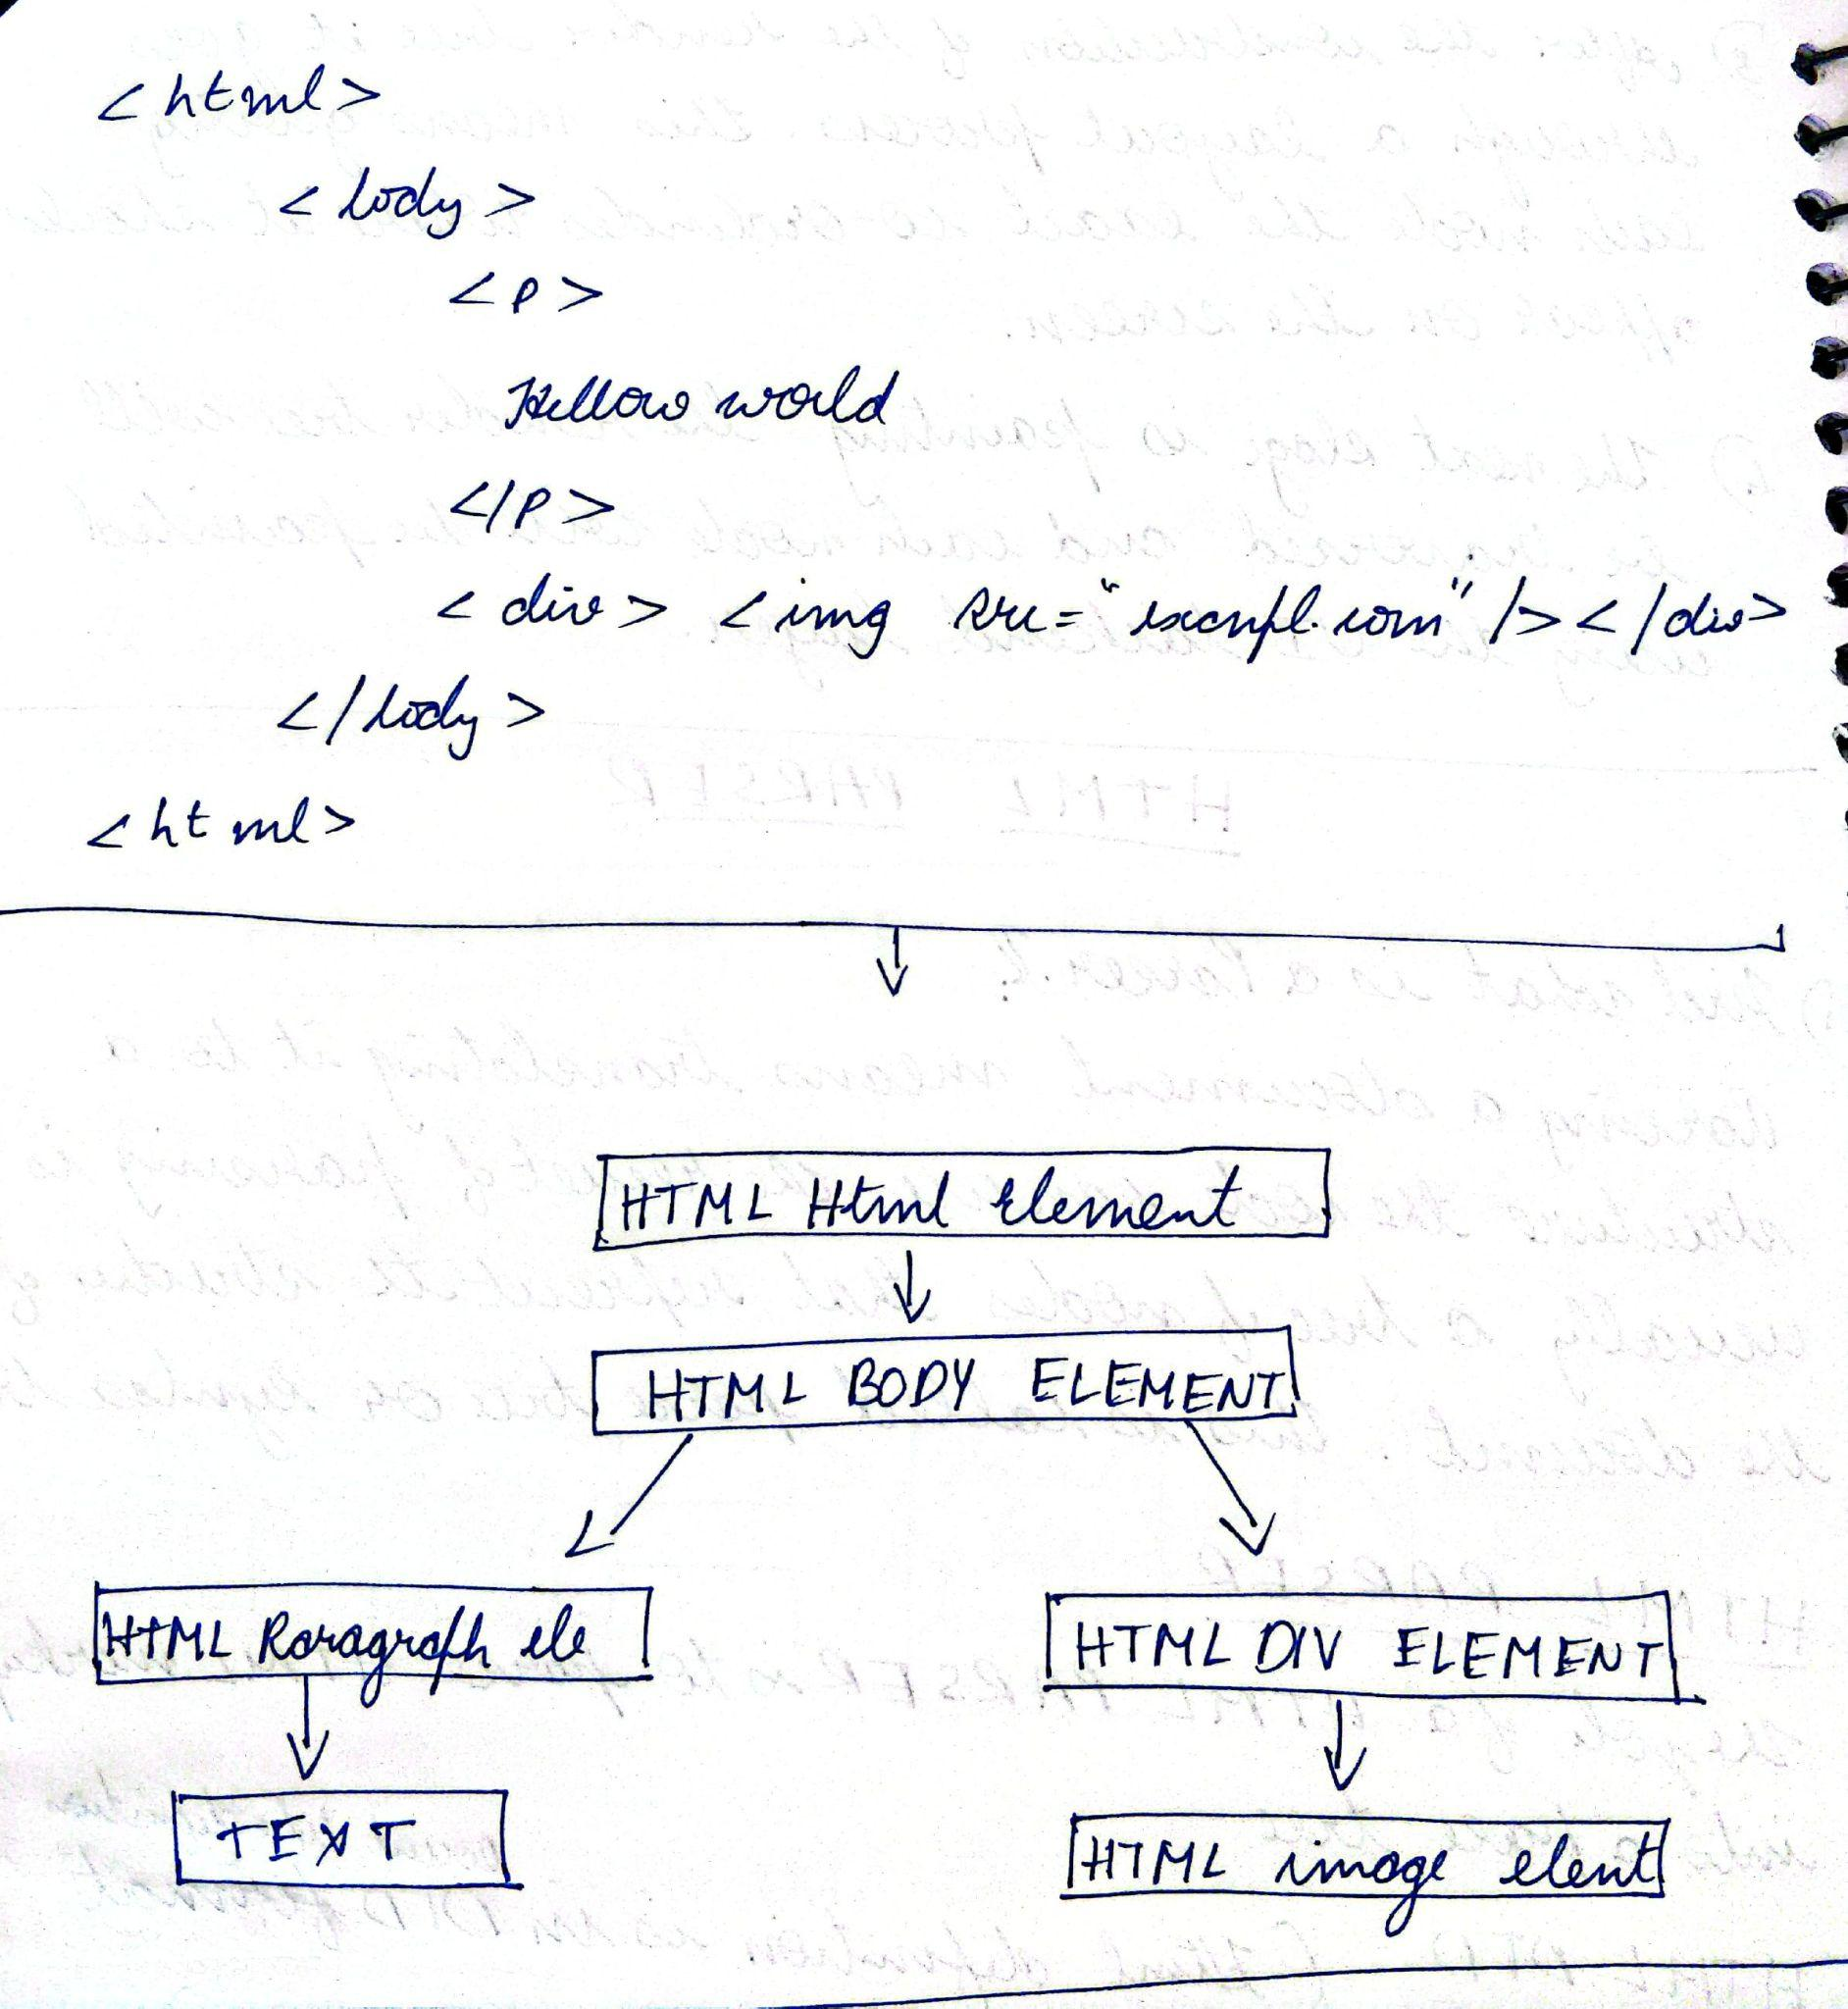 <html>
<body>
<p>
Hellow world
</p>
<div> <img src="exampl.com" /></div>
</body>
<html>
HTML Html Element
HTML BODY ELEMENT
HTML Paragraph ele
HTML DIV ELEMENT
TEXT
HTML image elent